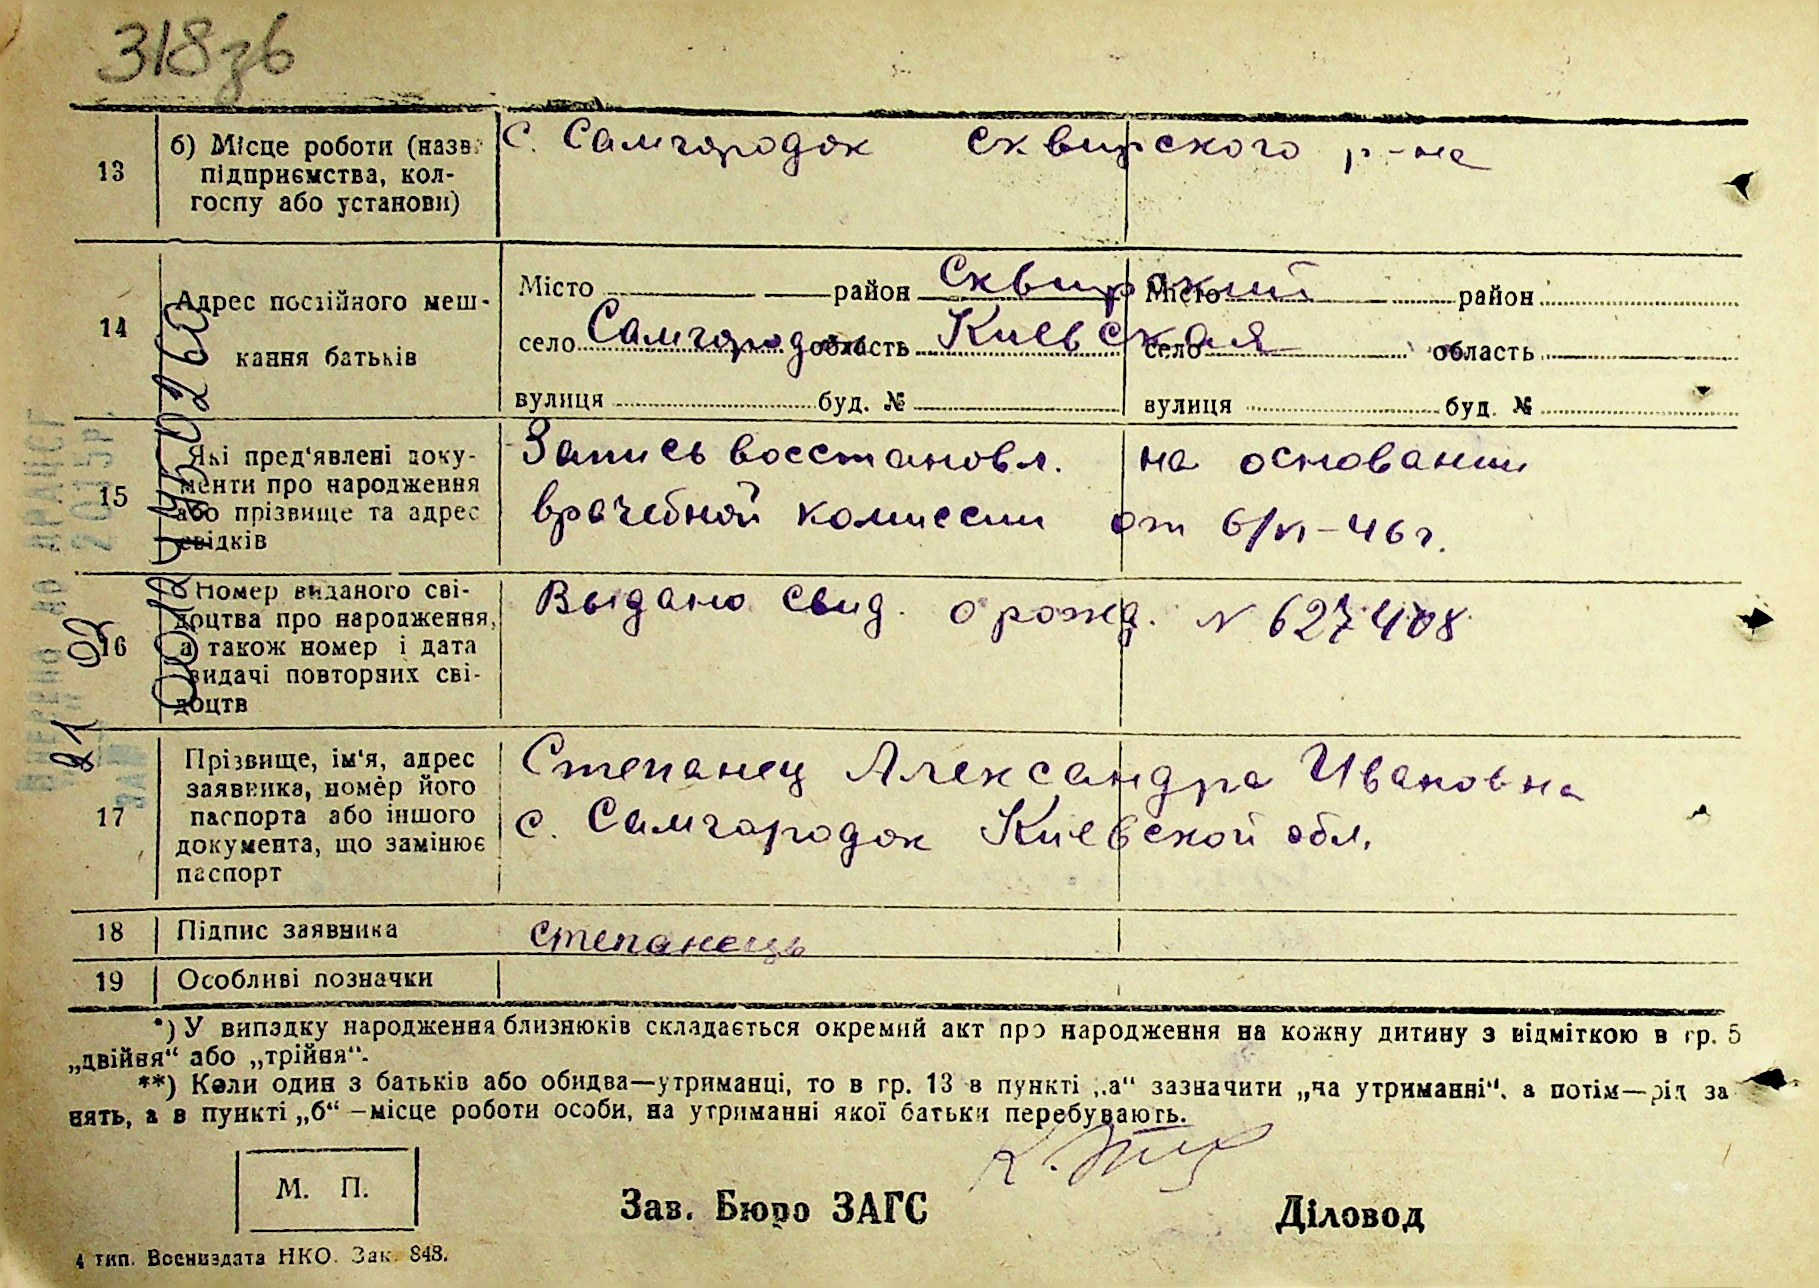 318зв
13
б) Місце роботи (назв
підприємства, кол-
госпу або установи)
с. Самгородок сквирского р-на
14
Адрес постійного меш-
кання батьків
Місто район Сквирский
село Самгородок область Киевская
вулиця буд. №
Місто район
село область
вулиця буд. №
15
Які пред'явлені доку-
менти про народження
або прізвище та адрес
свідків
Запись восстановл. на основании
врачебной комиссии от 6/VI-46 г.
16
Номер виданого сві-
доцтва про народження,
а також номер і дата
видачі повторних сві-
доцтв
Выдано свид. о рожд. N 627408
17
Прізвище, ім'я, адрес
заявника, номер його
паспорта або іншого
документа, що замінює
паспорт
Степанец Александра Ивановна
с. Самгородок Киевской обл.
18
Підпис заявника
степанець
19
Особливі позначки
*) У випадку народження близнюків складається окремий акт про народження на кожну дитину з відміткою в гр. 5
„двійня“ або „трійня“.
**) Коли один з батьків або обидва—утриманці, то в гр. 13 в пункті „а“ зазначити „на утриманні“, а потім—рід за
нять, а в пункті „б“ —місце роботи особи, на утриманні якої батьки перебувають.
М. П.
Зав. Бюро ЗАГС
Діловод
4 тип. Воениздата НКО. Зак. 848.